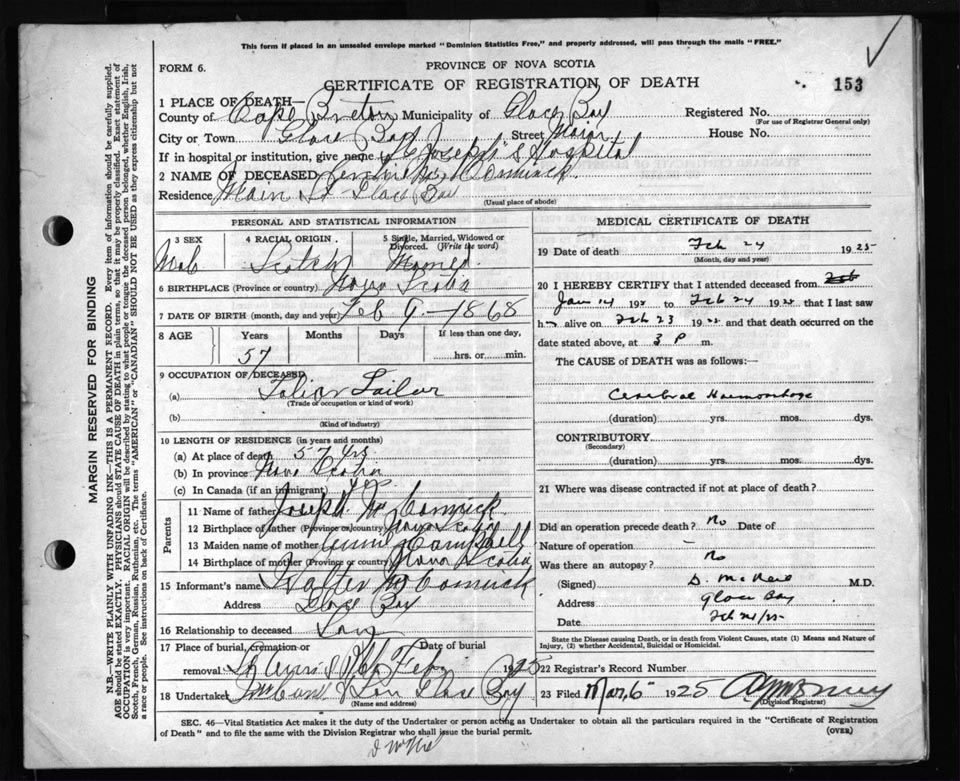 This form if placed in an unsealed envelope marked "Dominion Statistics Free," and properly addressed, will pass through the mails "FREE."
FORM 6.
PROVINCE OF NOVA SCOTIA
CERTIFICATE OF REGISTRATION OF DEATH
153
1 PLACE OF DEATH—
County of Cape Breton Municipality of Glace Bay Registered No.
(For use of Registrar General only)
City or Town Glace Bay Street Main House No.
If in hospital or institution, give name St Joseph's Hospital
2 NAME OF DECEASED McCormick.
Residence Main St Glace Bay
(Usual place of abode)
PERSONAL AND STATISTICAL INFORMATION
3 SEX 4 RACIAL ORIGIN. 5 Single, Married, Widowed or Divorced. (Write the word)
Male Scotch Married.
6 BIRTHPLACE (Province or country) Nova Scotia
7 DATE OF BIRTH (month, day and year) Feb 9 - 1868
8 AGE Years Months Days If less than one day,
57 hrs. or min.
9 OCCUPATION OF DECEASED
(a) Tailor
(Trade or occupation or kind of work)
(b)
(Kind of industry)
10 LENGTH OF RESIDENCE (in years and months)
(a) At place of death 57 yrs
(b) In province Nova Scotia
(c) In Canada (if an immigrant)
Parents
11 Name of father Joseph McCormick
12 Birthplace of father (Province or country) Nova Scotia
13 Maiden name of mother Annie Campbell
14 Birthplace of mother (Province or country) Nova Scotia
15 Informant's name Walter McCormick
Address Glace Bay
16 Relationship to deceased Son
17 Place of burial, cremation or Date of burial
removal Feb 1925
18 Undertaker & Son Glace Bay
(Name and address)
MEDICAL CERTIFICATE OF DEATH
19 Date of death Feb 24 1925
(Month, day and year)
20 I HEREBY CERTIFY that I attended deceased from Feb
Jan 14 192 to Feb 24 192 that I last saw
h alive on Feb 23 19 and that death occurred on the
date stated above, at 3 P m.
The CAUSE of DEATH was as follows:—
Cerebral Haemorrhage
(duration) yrs. mos. dys.
CONTRIBUTORY
(Secondary)
(duration) yrs. mos. dys.
21 Where was disease contracted if not at place of death?
Did an operation precede death? No Date of
Nature of operation -
Was there an autopsy? No
(Signed) D. M.D.
Address Glace Bay
Date Feb 24/25
State the Disease causing Death, or in death from Violent Causes, state (1) Means and Nature of Injury, (2) whether Accidental, Suicidal or Homicidal.
22 Registrar's Record Number
23 Filed Mar, 6 1925
(Division Registrar)
SEC. 46—Vital Statistics Act makes it the duty of the Undertaker or person acting as Undertaker to obtain all the particulars required in the "Certificate of Registration
of Death" and to file the same with the Division Registrar who shall issue the burial permit. (OVER)
MARGIN RESERVED FOR BINDING
N.B.—WRITE PLAINLY WITH UNFADING INK—THIS IS A PERMANENT RECORD. Every item of information should be carefully supplied.
AGE should be stated EXACTLY. PHYSICIANS should STATE CAUSE OF DEATH in plain terms, so that it may be properly classified. Exact statement of
OCCUPATION is very important. RACIAL ORIGIN will be described by stating to what people or tongue the deceased person belonged, whether English, Irish,
Scotch, French, German, Russian, Ruthenian, etc. The terms "AMERICAN" or "CANADIAN" SHOULD NOT BE USED as they express citizenship but not
a race or people. See instructions on back of Certificate.